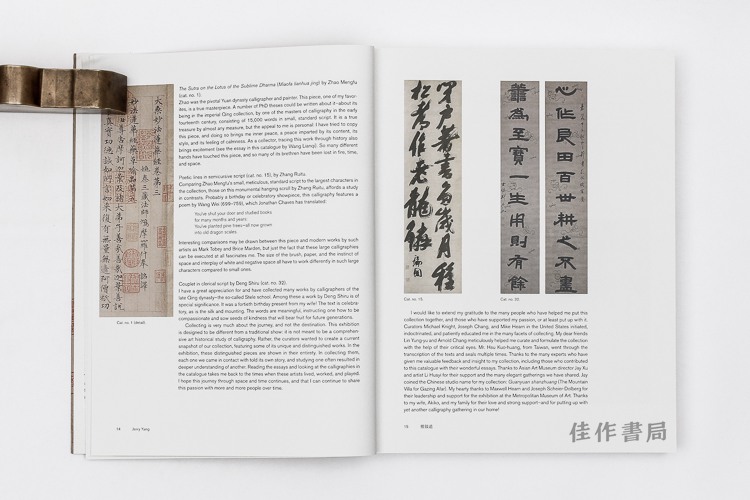 大乘妙法蓮華經卷第三
姚秦三藏法師鳩摩羅什奉詔譯
Cat. no. 1 (detail)
The Sutra on the Lotus of the Sublime Dharma (Miaofa lianhua jing) by Zhao Mengfu
(cat. no. 1).
Zhao was the pivotal Yuan dynasty calligrapher and painter. This piece, one of my favor-
ites, is a true masterpiece. A number of PhD theses could be written about it–about its
being in the imperial Qing collection, by one of the masters of calligraphy in the early
fourteenth century, consisting of 15,000 words in small, standard script. It is a true
treasure by almost any measure, but the appeal to me is personal. I have tried to copy
this piece, and doing so brings me inner peace, a peace imparted by its content, its
style, and its feeling of calmness. As a collector, tracing this work through history also
brings excitement (see the essay in this catalogue by Wang Lianqi). So many different
hands have touched this piece, and so many of its brethren have been lost in fire, time,
and space.
Poetic lines in semicursive script (cat. no. 15), by Zhang Ruitu.
Comparing Zhao Mengfu's small, meticulous, standard script to the largest characters in
the collection, those on this monumental hanging scroll by Zhang Ruitu, affords a study
in contrasts. Probably a birthday or celebratory showpiece, this calligraphy features a
poem by Wang Wei (699–759), which Jonathan Chaves has translated:
You've shut your door and studied books
for many months and years:
You've planted pine trees–all now grown
into old dragon scales.
Interesting comparisons may be drawn between this piece and modern works by such
artists as Mark Tobey and Brice Marden, but just the fact that these large calligraphies
can be executed at all fascinates me. The size of the brush, paper, and the instinct of
space and interplay of white and negative space all have to work differently in such large
characters compared to small ones.
Couplet in clerical script by Deng Shiru (cat. no. 32).
I have a great appreciation for and have collected many works by calligraphers of the
late Qing dynasty–the so-called Stele school. Among these a work by Deng Shiru is of
special significance. It was a fortieth birthday present from my wife! The text is celebra-
tory, as is the silk and mounting. The words are meaningful, instructing one how to be
compassionate and sow seeds of kindness that will bear fruit for future generations.
Collecting is very much about the journey, and not the destination. This exhibition
is designed to be different from a traditional show: it is not meant to be a comprehen-
sive art historical study of calligraphy. Rather, the curators wanted to create a current
snapshot of our collection, featuring some of its unique and distinguished works. In the
exhibition, these distinguished pieces are shown in their entirety. In collecting them,
each one we came in contact with told its own story, and studying one often resulted in
deeper understanding of another. Reading the essays and looking at the calligraphies in
the catalogue takes me back to the times when these artists lived, worked, and played.
I hope the journey through space and time continues, and that I can continue to share
this passion with more and more people over time.
14 Jerry Yang
閉户著書多歲月種
松皆作老龍鱗
瑞圖
心作良田百世耕之不盡
善為至寶一生用則有餘
Cat. no. 15.
I would like to extend my gratitude to the many people who have helped me put this
collection together, and those who have supported my passion, or at least put up with it.
Curators Michael Knight, Joseph Chang, and Mike Hearn in the United States initiated,
indoctrinated, and patiently educated me in the many facets of collecting. My dear friends
Lin Yung-yu and Arnold Chang meticulously helped me curate and formulate the collection
with the help of their critical eyes. Mr. Hou Kuo-huang, from Taiwan, went through the
transcription of the texts and seals multiple times. Thanks to the many experts who have
given me valuable feedback and insight to my collection, including those who contributed
to this catalogue with their wonderful essays. Thanks to Asian Art Museum director Jay Xu
and artist Li Huayi for their support and the many elegant gatherings we have shared. Jay
coined the Chinese studio name for my collection: Guanyuan shanzhuang (The Mountain
Villa for Gazing Afar). My hearty thanks to Maxwell Hearn and Joseph Scheier-Dolberg for
their leadership and support for the exhibition at the Metropolitan Museum of Art. Thanks
to my wife, Akiko, and my family for their love and strong support–and for putting up with
yet another calligraphy gathering in our home!
15 楊致遠
佳作書局